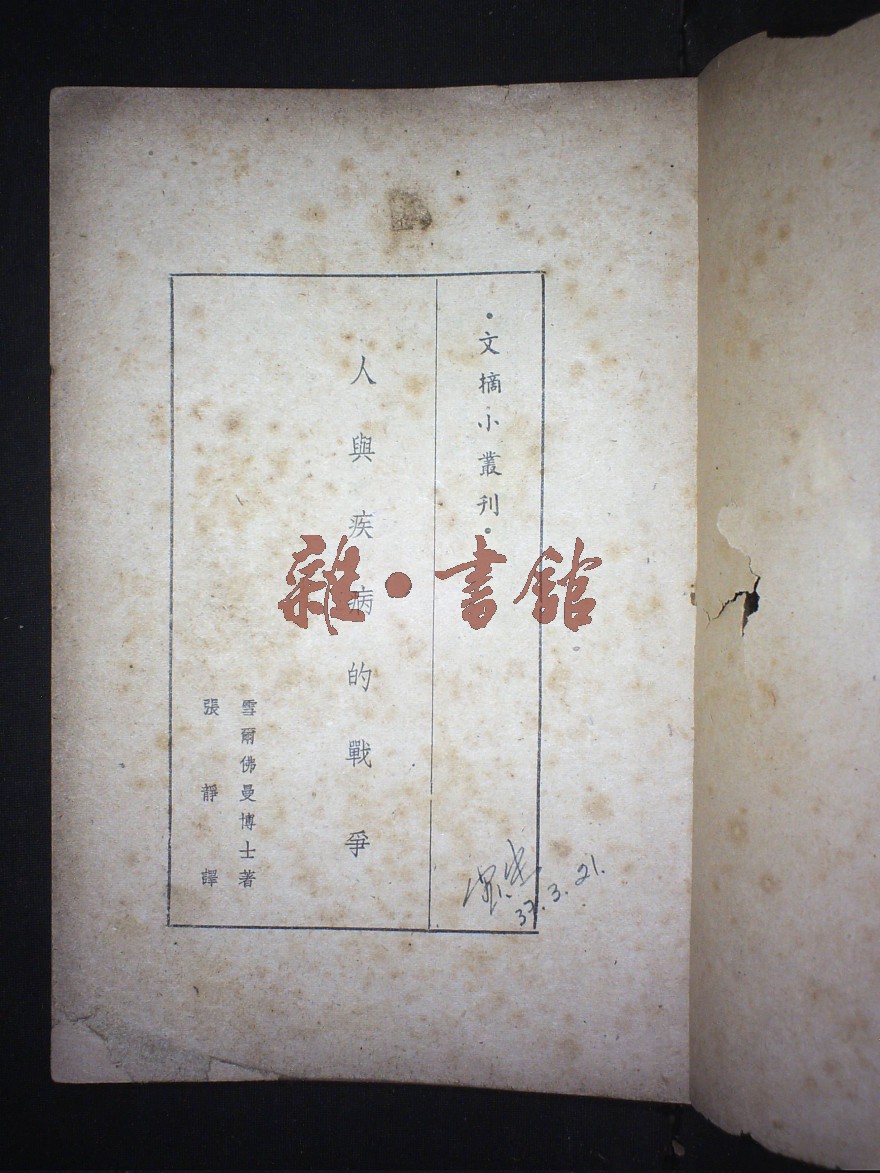 ·文摘小叢刊·
人與疾病的戰爭
雪爾佛曼博士著
張靜譯
37.3.21.
雜·書館